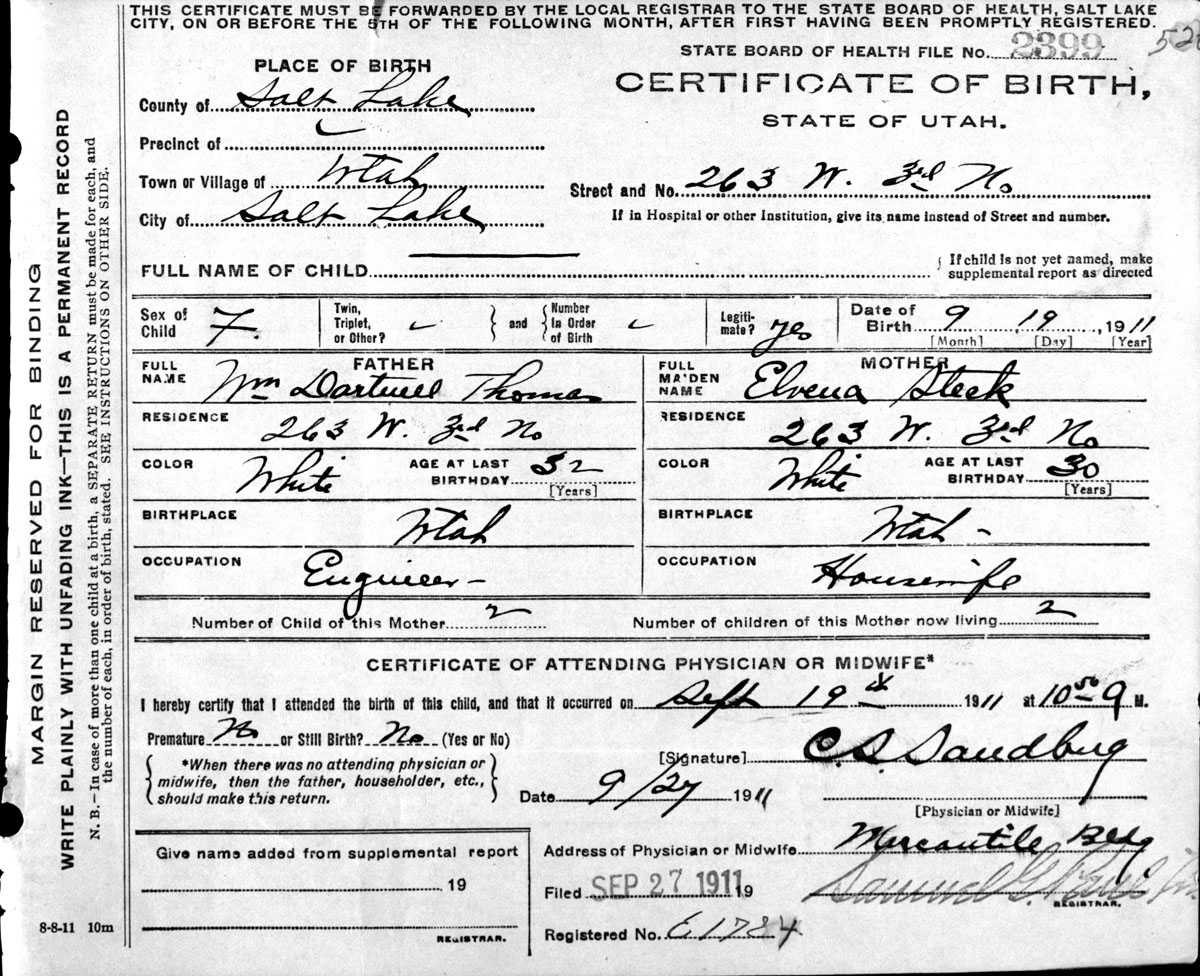 THIS CERTIFICATE MUST BE FORWARDED BY THE LOCAL REGISTRAR TO THE STATE BOARD OF HEALTH, SALT LAKE
CITY, ON OR BEFORE THE 5TH OF THE FOLLOWING MONTH, AFTER FIRST HAVING BEEN PROMPTLY REGISTERED.
STATE BOARD OF HEALTH FILE No. 2399
PLACE OF BIRTH
CERTIFICATE OF BIRTH,
STATE OF UTAH.
County of Salt Lake
Precinct of
Town or Village of Utah
Street and No. 263 W. 3rd No
City of Salt Lake
If in Hospital or other Institution, give its name instead of Street and number.
FULL NAME OF CHILD
If child is not yet named, make
supplemental report as directed
Sex of Child F. Twin, Triplet, or Other? and Number In Order of Birth Legiti-mate? yes Date of Birth 9 19, 1911
[Month] [Day] [Year]
FATHER MOTHER
FULL NAME Wm Thomas FULL MAIDEN NAME Elvena Steck
RESIDENCE 263 W. 3rd No RESIDENCE 263 W. 3rd No
COLOR White AGE AT LAST BIRTHDAY 32 [Years] COLOR White AGE AT LAST BIRTHDAY 30 [Years]
BIRTHPLACE Utah BIRTHPLACE Utah -
OCCUPATION Engineer - OCCUPATION Housewife
Number of Child of this Mother 2 Number of children of this Mother now living 2
CERTIFICATE OF ATTENDING PHYSICIAN OR MIDWIFE*
I hereby certify that I attended the birth of this child, and that it occurred on Sept 19th 1911 at 10 50 M.
Premature No or Still Birth? No (Yes or No)
*When there was no attending physician or
midwife, then the father, householder, etc.,
should make this return.
[Signature] C.S. Sandberg
Date 9/27 1911
[Physician or Midwife]
Address of Physician or Midwife Mercantile Bldg
Give name added from supplemental report
19
REGISTRAR.
Filed SEP 27 1911 19
Samuel G.
REGISTRAR.
Registered No. E1784
8-8-11 10m
MARGIN RESERVED FOR BINDING
WRITE PLAINLY WITH UNFADING INK—THIS IS A PERMANENT RECORD
N. B.—In case of more than one child at a birth, a SEPARATE RETURN must be made for each, and
the number of each, in order of birth, stated. SEE INSTRUCTIONS ON OTHER SIDE.